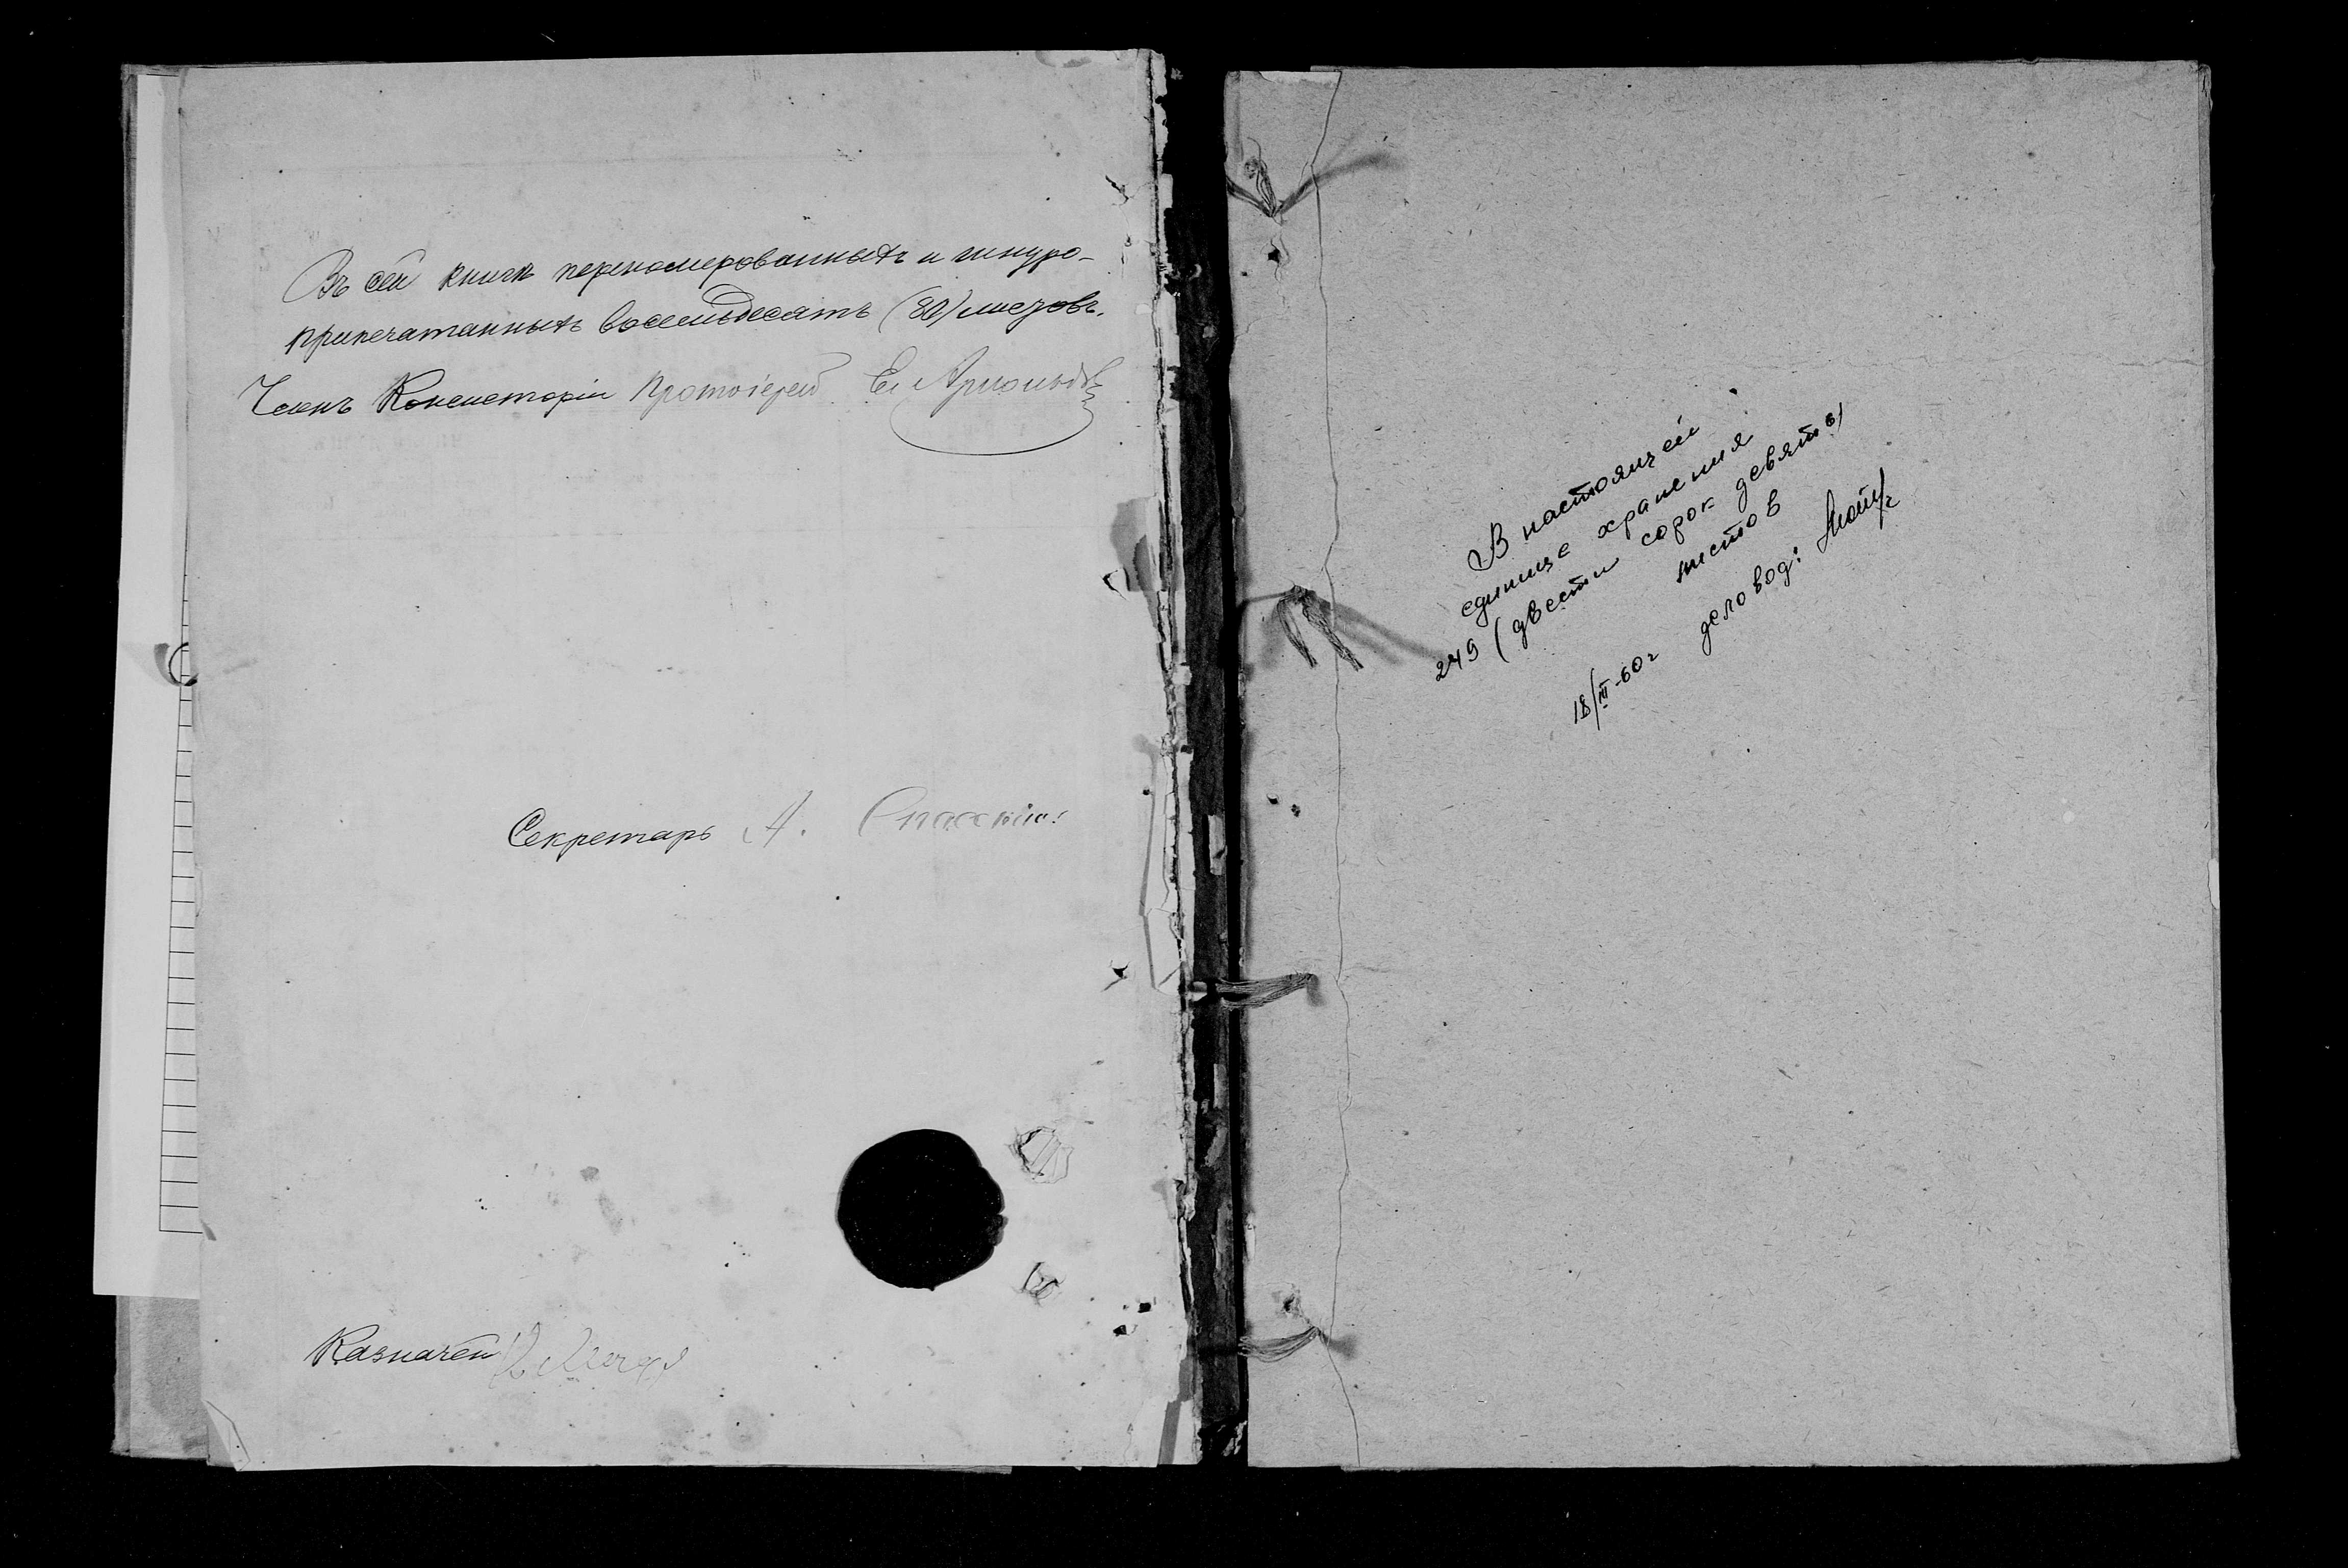 Въ сей книгѣ переномерованныхъ и шнуро-
припечатанныхъ восемьдесятъ (80) листовъ.
Членъ Консисторіи Протоіерей Ел
Секретарь А. Спасскій
Казначей
В настоящей
единице хранения
249 (двести сорок девять)
листов
18/III-60 г деловод: